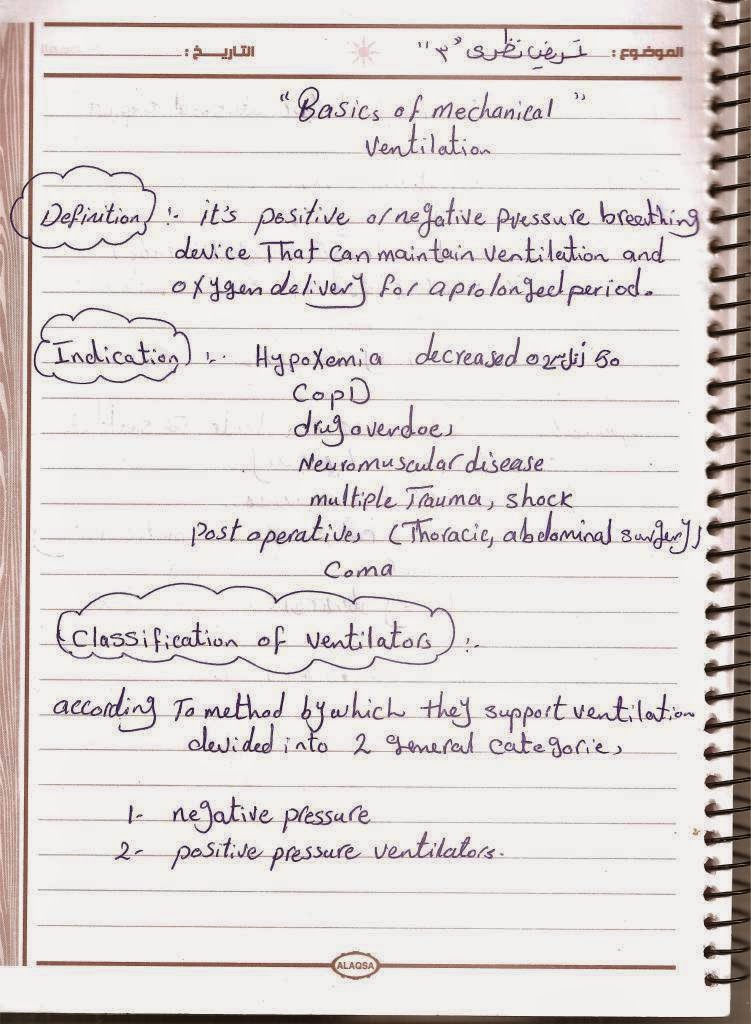 الموضوع : تمريض نظري "٣" التاريخ :
"Basics of mechanical"
Ventilation
Definition :- it's positive or negative pressure breathing
device That Can maintain ventilation and
oxygen delivery for a prolonged period.
Indication :- Hypoxemia decreased O2 50
CopD
drug overdoes
Neuromuscular disease
multiple Trauma, shock
post operative, (Thoracic, abdominal surgery)
Coma
Classification of ventilators :-
according To method by which they support ventilation
devided into 2 general categories
1- negative pressure
2- positive pressure ventilators.
ALAQSA